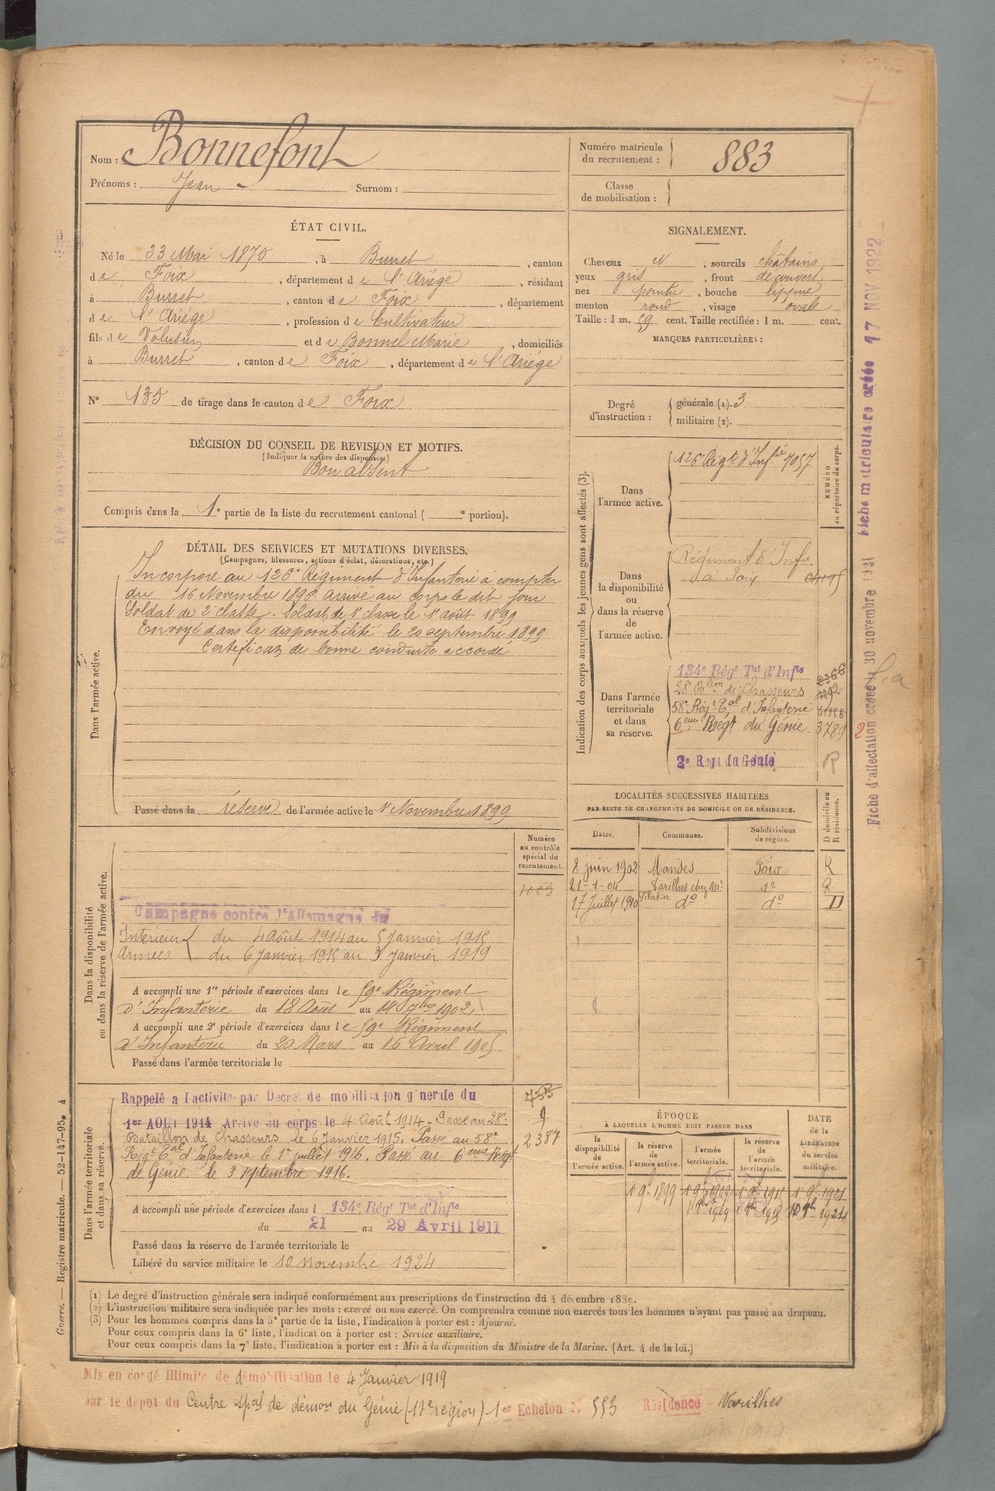 Nom : Bonnefont
Prénoms : Jean Surnom :
Numéro matricule du recrutement : 883
Classe de mobilisation :
ÉTAT CIVIL.
Né le 23 Mai 1875, à Burret, canton
de Foix, département de l'Ariége, résidant
à Burret, canton de Foix, département
de l'Ariége, profession de Cultivateur
fils de Volusien et de Bonnel Marie, domiciliés
à Burret, canton de Foix, département de l'Ariége
N° 135 de tirage dans le canton de Foix
SIGNALEMENT.
Cheveux et, sourcils châtains
yeux gris, front découvert
nez pointu, bouche moyenne
menton rond, visage ovale
Taille : 1 m. 59 cent. Taille rectifiée : 1 m. cent.
MARQUES PARTICULIÈRES :
Degré d'instruction : générale (1). 3
militaire (2).
DÉCISION DU CONSEIL DE REVISION ET MOTIFS.
(Indiquer la nature des dispenses)
Bon absent
Compris dans la 1e partie de la liste du recrutement cantonal ( e portion).
DÉTAIL DES SERVICES ET MUTATIONS DIVERSES.
(Campagnes, blessures, actions d'éclat, décorations, etc.)
Dans l'armée active.
Incorporé au 126e Régiment d'Infanterie à compter
du 16 Novembre 1896. Arrivé au corps le dit jour
Soldat de 2e classe. Soldat de 1e classe le 1er août 1899
Envoyé dans la disponibilité le 20 septembre 1899
Certificat de bonne conduite accordé
Passé dans la réserve de l'armée active le 1er Novembre 1899
Indication des corps auxquels les jeunes gens sont affectés (3).
NUMÉRO au répertoire du corps.
Dans l'armée active.
126 Régt d'Infie 7057
Dans la disponibilité ou dans la réserve de l'armée active.
Régiment d'Infie
de Foix
Dans l'armée territoriale et dans sa réserve.
134e Régt Tal d'Infie 2366
28e Bon de Chasseurs 4292
58e Régt Tal d'Infanterie
6eme Régt du Génie 3789
2e Régt du Génie R
LOCALITÉS SUCCESSIVES HABITÉES
PAR SUITE DE CHANGEMENTS DE DOMICILE OU DE RÉSIDENCE.
D domicile ou R résidence.
Dates. Communes. Subdivisions de région.
8 juin 1902 Mandes Foix R
21-1-04 Varilhes chez Mr do R
17 Juillet 1910 do do D
Numéro au contrôle spécial du recrutement
1003
Dans la disponibilité ou dans la réserve de l'armée active.
Campagne contre l'Allemagne du
Intérieur du 4 Août 1914 au 5 Janvier 1915
Armées du 6 janvier 1915 au 3 janvier 1919
A accompli une 1re période d'exercices dans le 59e Régiment
d'Infanterie du 18 Août au 14 7bre 1902
A accompli une 2e période d'exercices dans le 59e Régiment
d'Infanterie du 20 Mars au 16 Avril 1905
Passé dans l'armée territoriale le
Dans l'armée territoriale et dans sa réserve.
Rappelé à l'activité par Décret de mobilisation générale du
1er AOUT 1914 Arrivé au corps le 4 Août 1914. Passé au 28e
Bataillon de Chasseurs le 6 janvier 1915. Passé au 58e
Régt Tal d'Infanterie le 1er juillet 1916. Passé au 6eme Régt
de Génie le 3 septembre 1916.
9
2387
A accompli une période d'exercices dans l 134e Régt Tal d'Infie
du 21 au 29 Avril 1911
Passé dans la réserve de l'armée territoriale le
Libéré du service militaire le 10 novembre 1924
ÉPOQUE
À LAQUELLE L'HOMME DOIT PASSER DANS
la disponibilité de l'armée active. la réserve de l'armée active. l'armée territoriale. la réserve de l'armée territoriale.
DATE de la LIBÉRATION du service militaire.
1 9e 1899 1 9e 1909 1 9e 1915 1 9e 1921
(1) Le degré d'instruction générale sera indiqué conformément aux prescriptions de l'instruction du 4 décembre 1889.
(2) L'instruction militaire sera indiquée par les mots : exercé ou non exercé. On comprendra comme non exercés tous les hommes n'ayant pas passé au drapeau.
(3) Pour les hommes compris dans la 5e partie de la liste, l'indication à porter est : Ajourné.
Pour ceux compris dans la 6e liste, l'indication à porter est : Service auxiliaire.
Pour ceux compris dans la 7e liste, l'indication à porter est : Mis à la disposition du Ministre de la Marine. (Art. 4 de la loi.)
Mis en congé illimité de démobilisation le 4 Janvier 1919
par le dépôt du Centre spal de démon du Génie (17e région) 1er Echelon N° 553 Résidence Varilhes
Guerre. — Registre matricule. — 52-147-95. 4
Fiche d'affectation créée 30 novembre 1921 Fiche matriculaire créée 17 NOV 1922